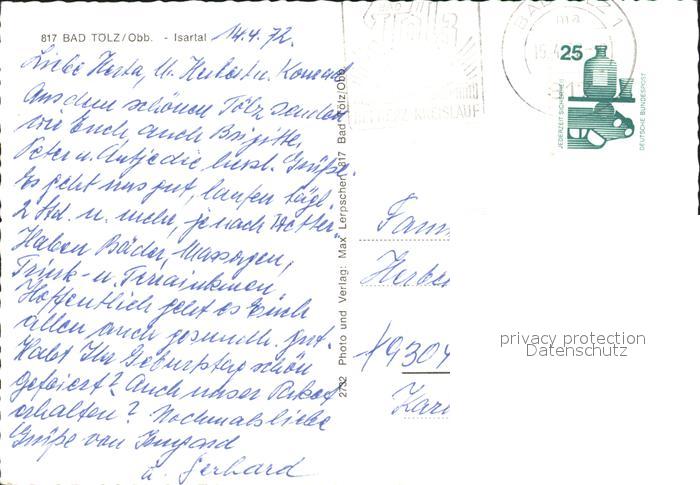 817 BAD TÖLZ/Obb. - Isartal 14.4.72.
Liebe Herta, H. Herbert u. Konrad
Aus dem schönen Tölz senden
wir Euch auch Brigitte,
Peter u. Antje die herzl. Grüße.
Es geht uns gut, laufen tägl.
2 Std. u. mehr, je nach Wetter.
Haben Bäder, Massagen,
Trink- u. Terrainkuren.
Hoffentlich geht es Euch
allen auch gesundh. gut.
Habt Ihr Geburtstag schön
gefeiert? Auch unser Paket
erhalten? Nochmals liebe
Grüße von Irmgard
u. Gerhard
2732 Photo und Verlag: Max Lerpscher 817 Bad Tölz/Obb.
BAD TÖLZ 1
ma
15.4
HERZ-KREISLAUF
25
JEDERZEIT SICHERHEIT
DEUTSCHE BUNDESPOST
Fam
Herbe
Kar
privacy protection
Datenschutz